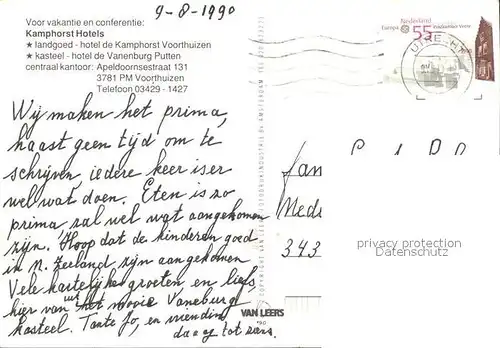 9-8-1990
Voor vakantie en conferentie:
Kamphorst Hotels
★ landgoed - hotel de Kamphorst Voorthuizen
★ kasteel - hotel de Vanenburg Putten
centraal kantoor: Apeldoornsestraat 131
3781 PM Voorthuizen
Telefoon 03429 - 1427
Nederland
Europa 55
Wij maken het prima,
haast geen tijd om te
schrijven, iedere keer is er
wel wat doen. Eten is zo
prima zal wel wat aangekomen
zijn. Hoop dat de kinderen goed
in N. Zeeland zijn aangekomen
Vele hartelijke groeten en liefs
hier van uit het mooie Vaneburg
kasteel. Tante Jo, en vriendin
daag tot ziens.
Jan
Mede
343
privacy protection
Datenschutz
VAN LEERS
'90